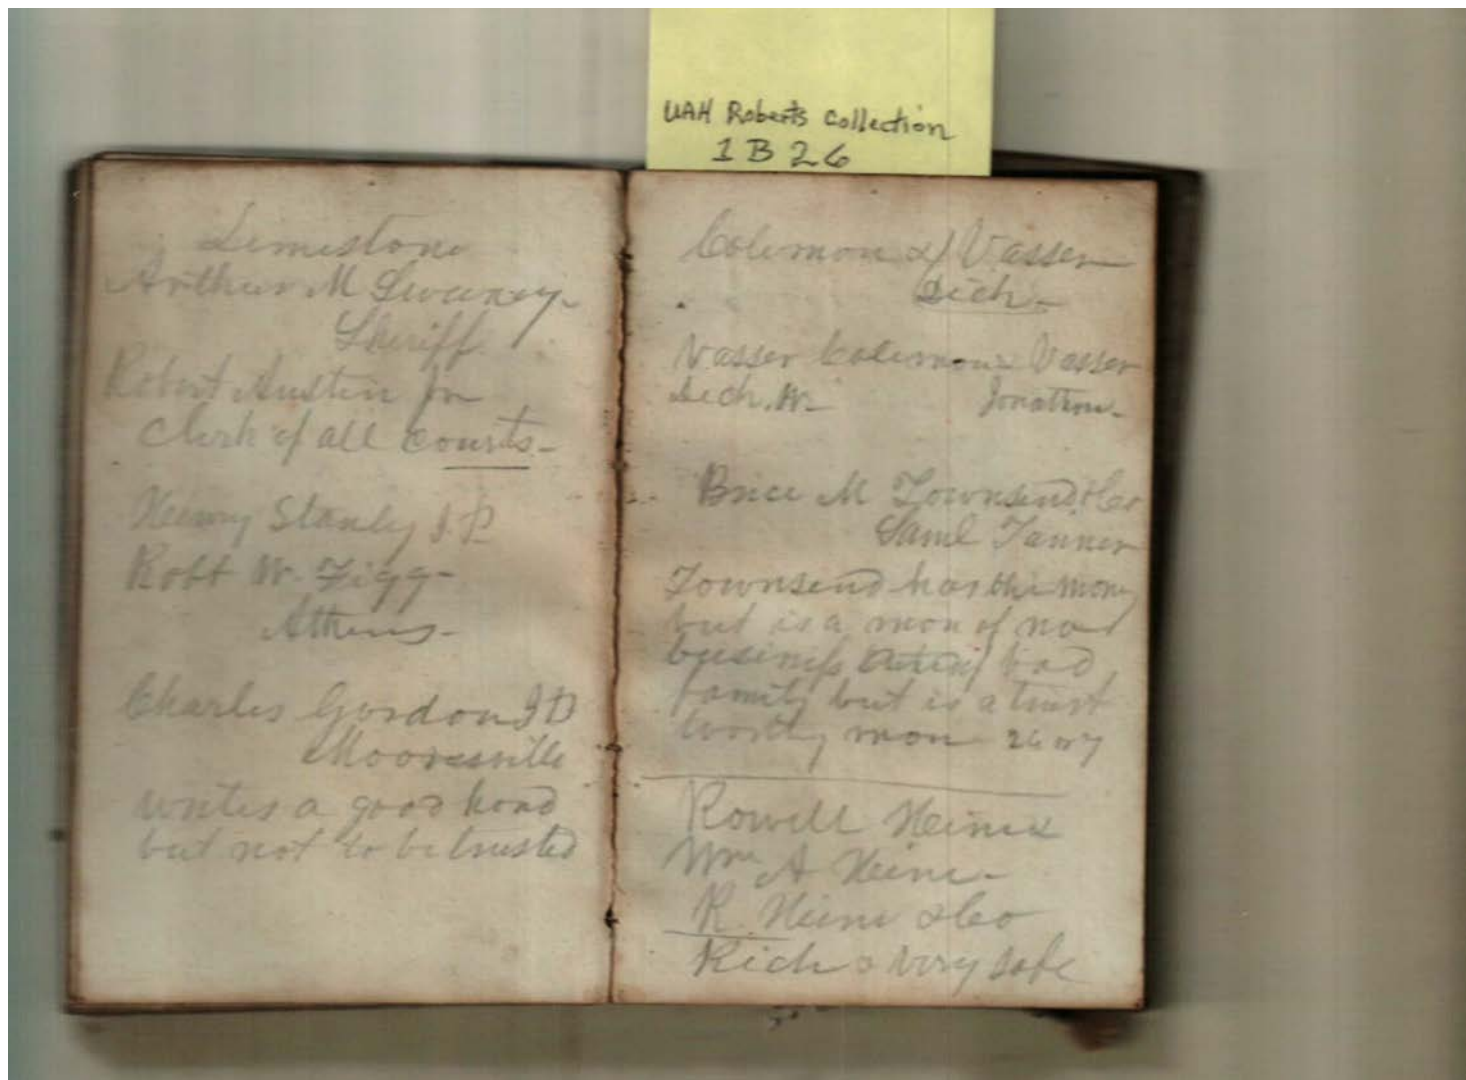 UAH Roberts Collection
1B26
Limestone
Arthur M Sweaney-
Sheriff
Robert Austin Jr
Clerk of all Courts-
Henry Stanly J.P.
Robt W. Figg-
Athens-
Charles Gordon JP
Mooresville
writes a good hand
but not to be trusted
Coleman & Vasser
Dich-
Vasser Coleman Vasser
Dich. W- Jonathon-
Brice M Townsend & Co
Saml Tanner
Townsend has the money
but is a man of no
business bad
family but is a trust
worthy man
Rowell Heine &
Wm A Heine-
R. Heine & Co
Rich & very safe